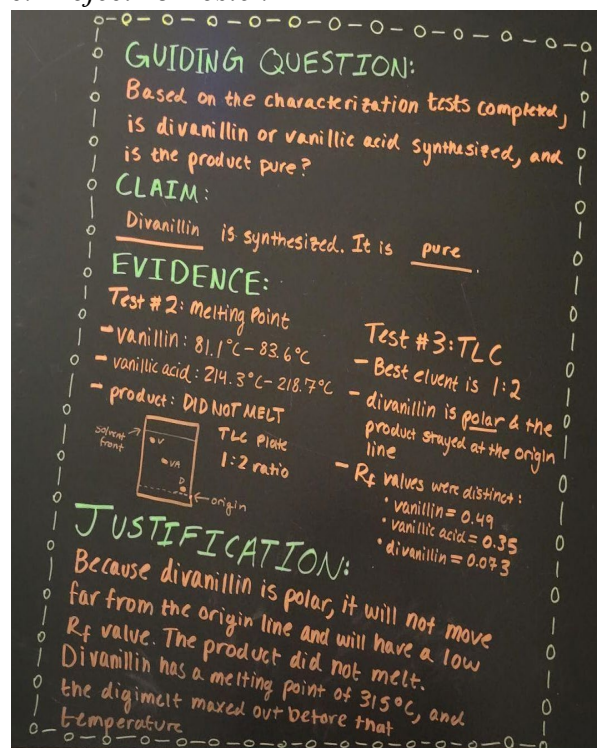 GUIDING QUESTION:
Based on the characterization tests completed,
is divanillin or vanillic acid synthesized, and
is the product pure?
CLAIM:
Divanillin is synthesized. It is pure.
EVIDENCE:
Test #2: Melting Point
- vanillin: 81.1°C - 83.6°C
- vanillic acid: 214.3°C - 218.7°C
- product: DID NOT MELT
solvent
front
V
VA
D
origin
TLC Plate
1:2 ratio
Test #3: TLC
- Best eluent is 1:2
- divanillin is polar & the
product stayed at the origin
line
- Rf values were distinct:
• vanillin = 0.49
• vanillic acid = 0.35
• divanillin = 0.073
JUSTIFICATION:
Because divanillin is polar, it will not move
far from the origin line and will have a low
Rf value. The product did not melt.
Divanillin has a melting point of 315°C, and
the digimelt maxed out before that
temperature